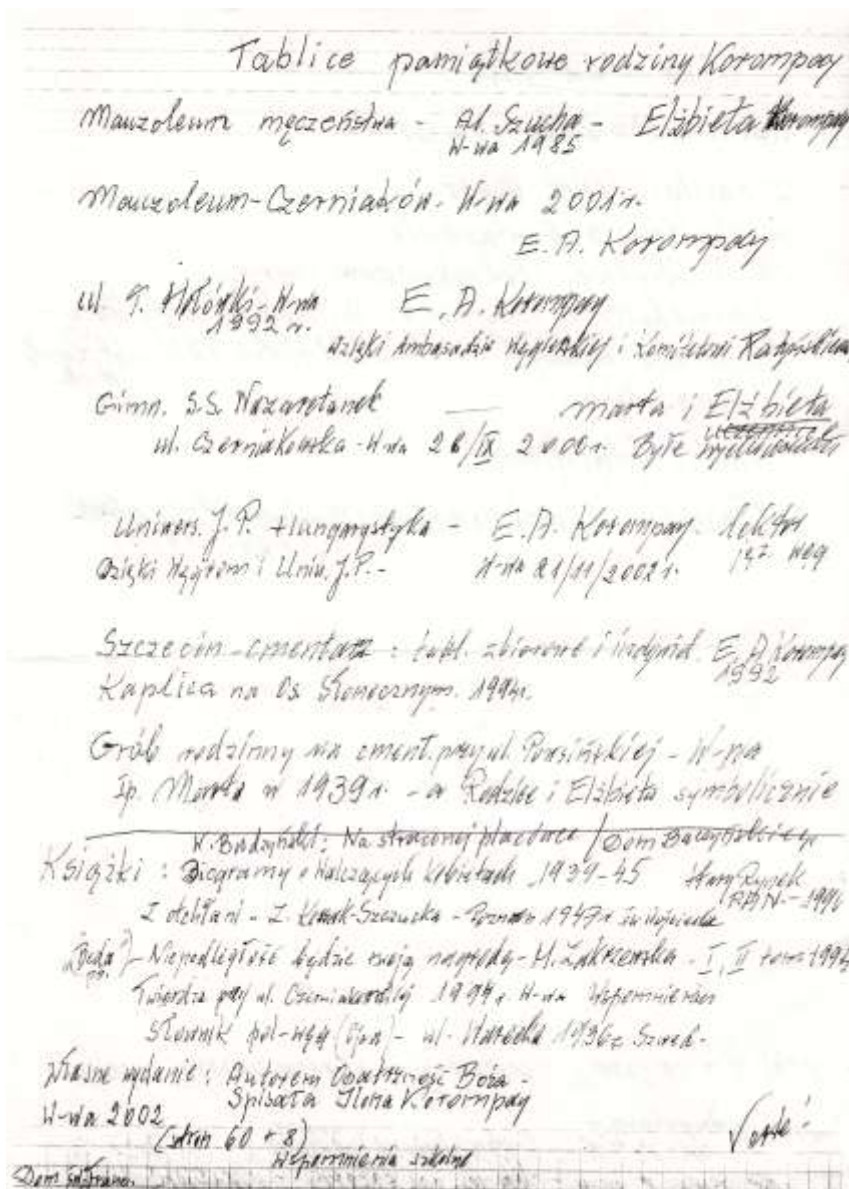 Tablice pamiątkowe rodziny Korompay
Mauzoleum męczeństwa - Al. Szucha - Elżbieta Korompay
W-wa 1985
Mauzoleum-Czerniaków- W-wa 2001r.
E. A. Korompay
ul. T. Hołówki-W-wa E. A. Korompay
1992 r.
dzięki Ambasadzie Węgierskiej i Komitetowi
Gimn. S.S. Nazaretanek — Marta i Elżbieta
ul. Czerniakowska - W-wa 28/IX 2000r. Byłe
Uniwers. J.P. Hungarystyka - E.A. Korompay. lektor
Dzięki Węgrom i Uniw. J.P. - W-wa 21/11/2002r. węg
Szczecin-cmentarz : tabl. zbiorowe i indywid. E. A Korompay
1992
Kaplica na Os. Słonecznym. 1994r.
Grób rodzinny na cment. przy ul. - W-wa
Śp. Marta w 1939r. - a Rodzice i Elżbieta symbolicznie
Na straconej placówce / Dom
Książki : Biogramy o Walczących Kobietach 1939-45 Stary Rynek
PAN - 1996
Z otchłani - Z. Kossak-Szczucka - Poznań 1947r. św Wojciecha
Niepodległość będzie twoją nagrodą - M. Zakrzewska - I, II tom 1994
Twierdza przy ul. Czerniakowskiej 1994r. W-wa
Słownik pol-węg - 1936
Własne wydanie : Autorem Opatrzność Boża -
Spisała Ilona Korompay
W-wa 2002
(stron 60 + 8)
Wspomnienia szkolne
Dom św. Franc.